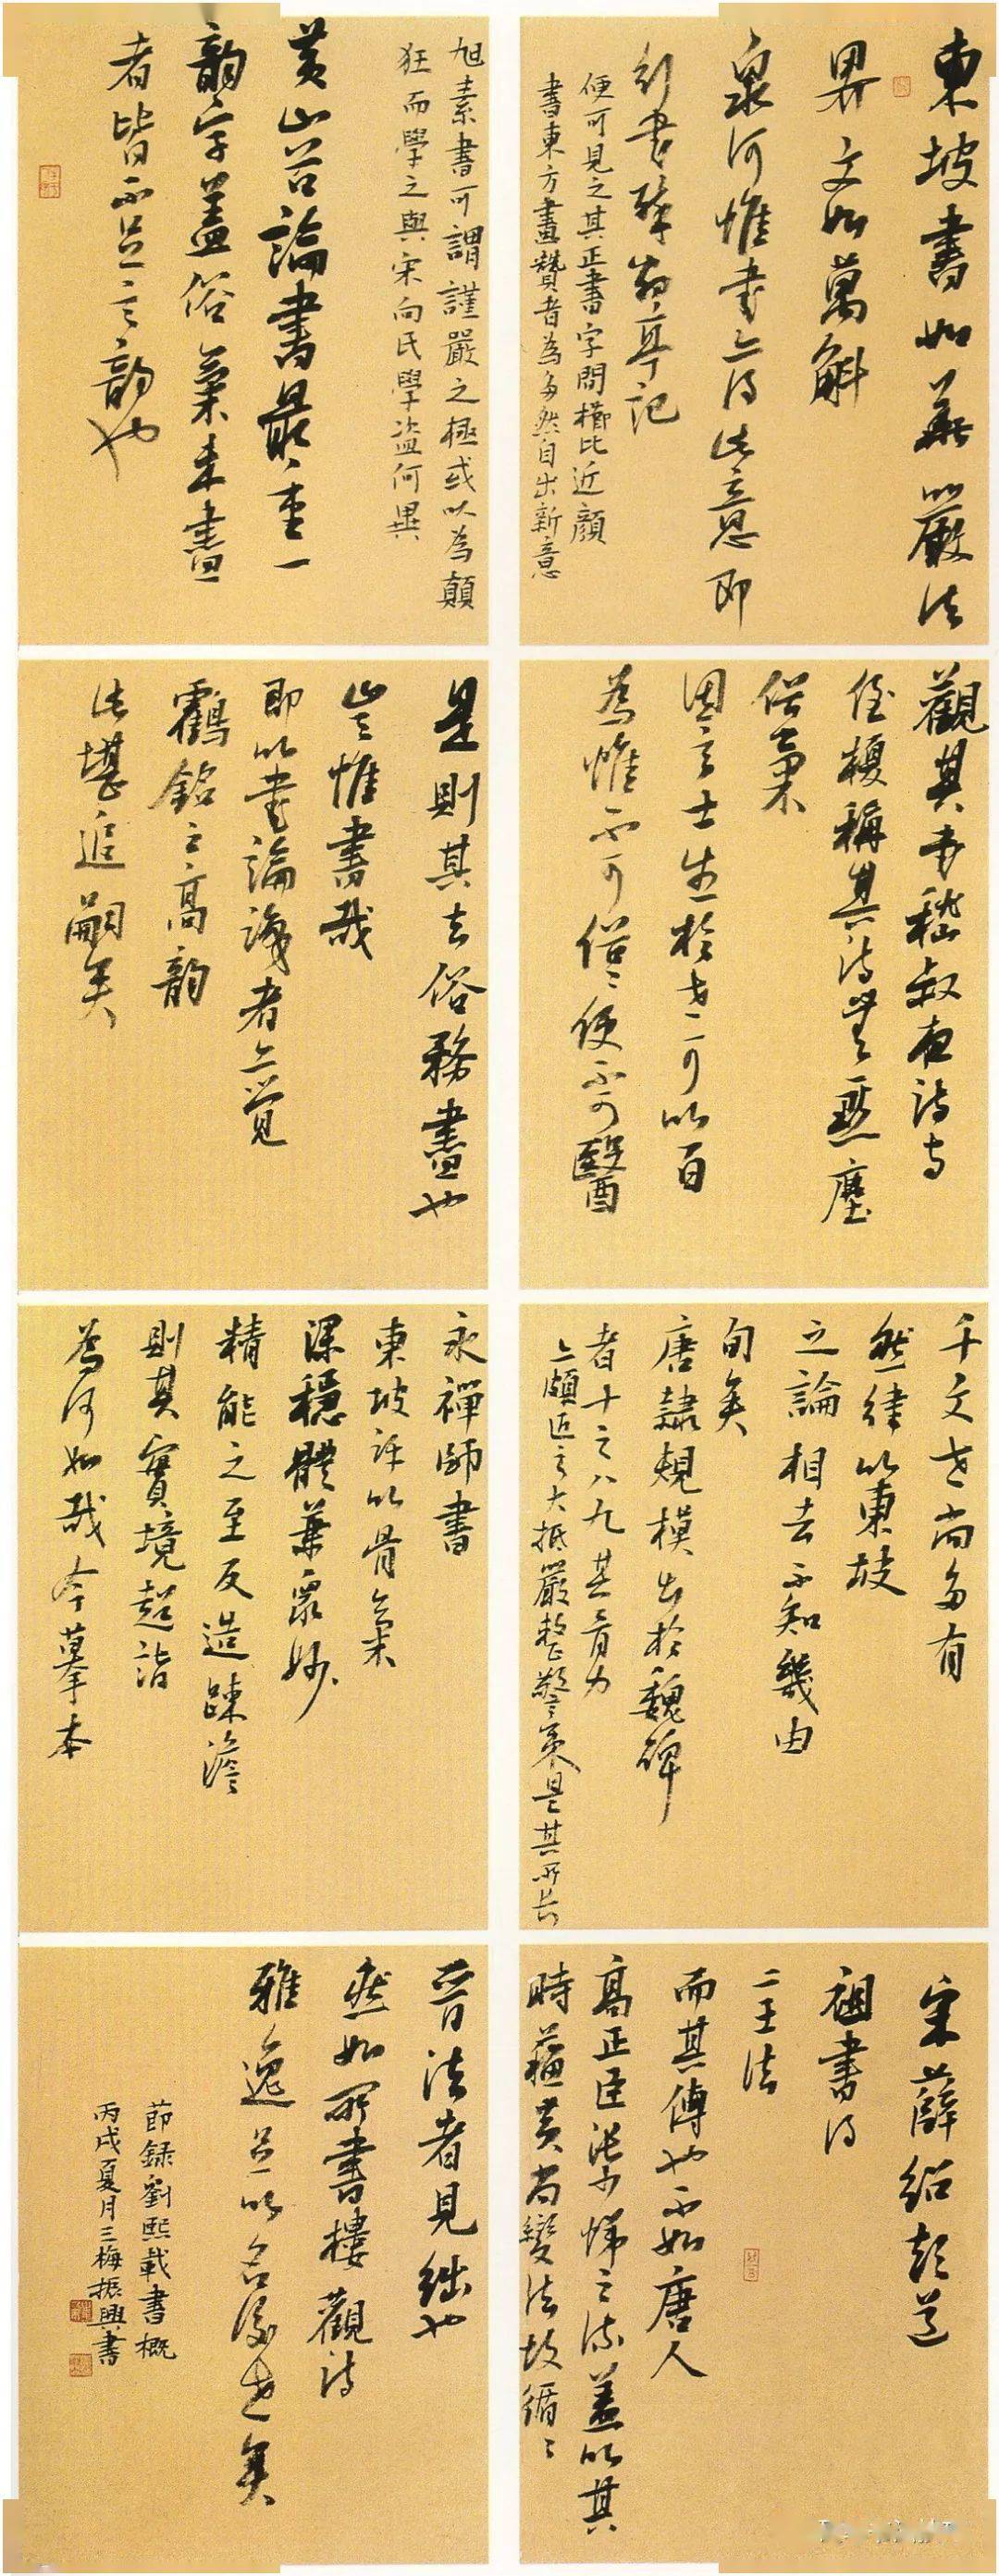 東坡書如華嚴法
界文如萬斛
泉何惟書亦得此意即
行書醉翁亭記
便可見之其正書字間櫛比近顏
書東方畫贊者為多然自出新意
旭素書可謂謹嚴之極或以為顛
狂而學之與宋向氏學盜何異
黃山谷論書最重一
韻字蓋俗氣未盡
者皆不足言韻也
觀其書嵇叔夜詩與
侄榎稱其詩無一點塵
俗氣
因言士生於世可以百
為惟不可俗〻便不可醫
是則其去俗務盡也
豈惟書哉
即以書論識者亦覺
鶴銘之高韻
此堪追嗣矣
千文世尚多有
然律以東坡
之論相去不知幾由
旬矣
唐隸規模出於魏碑
者十之八九其骨力
亦頗近之大抵嚴整警策是其所長
永禪師書
東坡評以骨氣
深穩體兼眾妙
精能之至反造疎澹
則其實境超詣
為何如哉今摹本
宋薛紹彭道
祖書得
二王法
而其傳也不如唐人
高正臣張少悌之流蓋以其
時蘇黃尚變法故循〻
晉法者見絀也
然如所書樓觀詩
雅逸足以名後世矣
節錄劉熙載書概
丙戌夏月三梅振興書